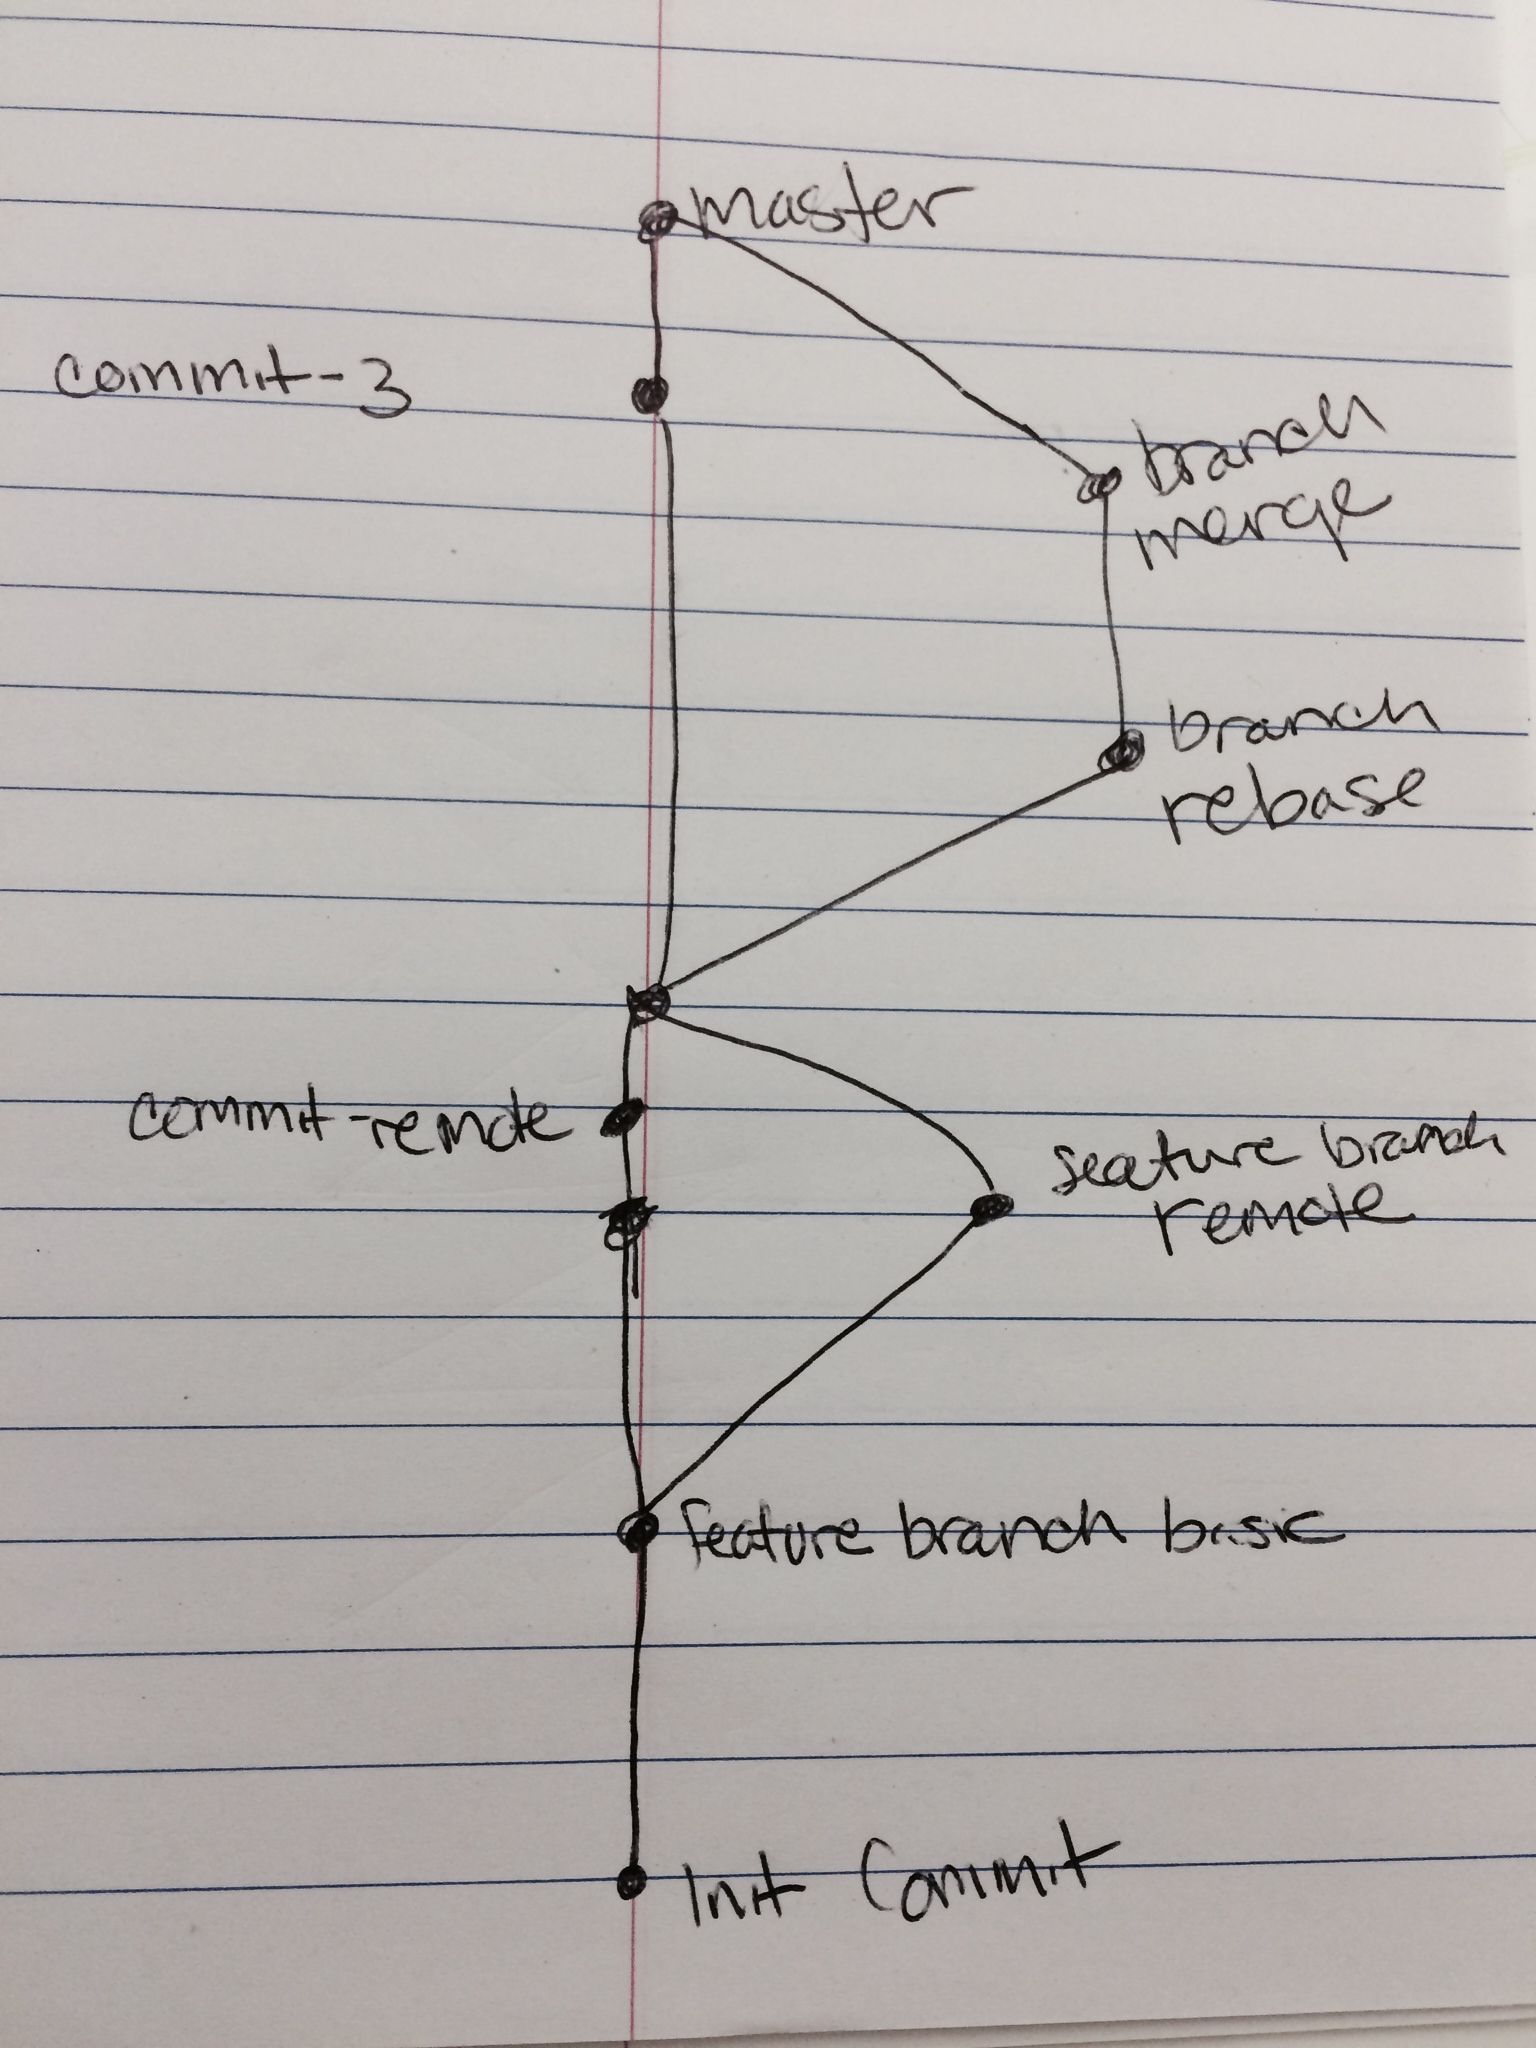 master
commit-3
branch
merge
branch
rebase
commit-remote
feature branch
remote
feature branch basic
Init Commit